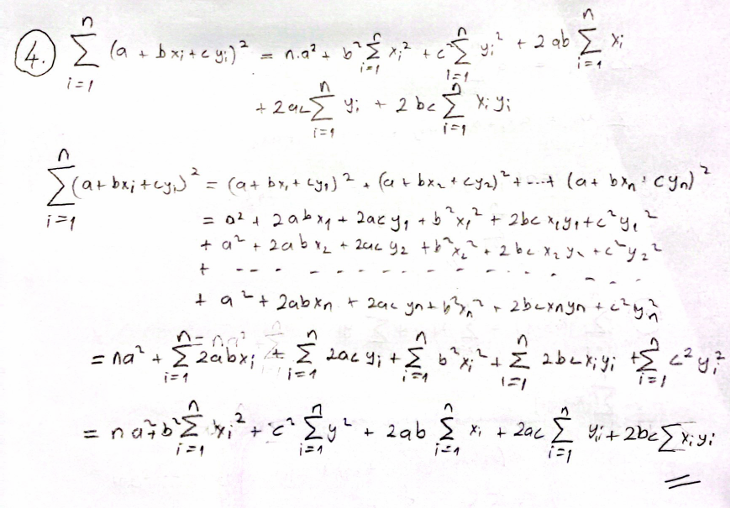 4. \sum_{i=1}^{n} (a + bx_i + cy_i)^2 = n.a^2 + b^2 \sum_{i=1}^{n} x_i^2 + c^2 \sum_{i=1}^{n} y_i^2 + 2ab \sum_{i=1}^{n} x_i
+ 2ac \sum_{i=1}^{n} y_i + 2bc \sum_{i=1}^{n} x_i y_i
\sum_{i=1}^{n} (a + bx_i + cy_i)^2 = (a + bx_1 + cy_1)^2 + (a + bx_2 + cy_2)^2 + ... + (a + bx_n + cy_n)^2
= a^2 + 2abx_1 + 2acy_1 + b^2x_1^2 + 2bcx_1y_1 + c^2y_1^2
+ a^2 + 2abx_2 + 2acy_2 + b^2x_2^2 + 2bcx_2y_2 + c^2y_2^2
+ - - - - - - - - - - - - - - -
+ a^2 + 2abx_n + 2acy_n + b^2x_n^2 + 2bcx_ny_n + c^2y_n^2
= na^2 + \sum_{i=1}^{n} 2abx_i + \sum_{i=1}^{n} 2acy_i + \sum_{i=1}^{n} b^2x_i^2 + \sum_{i=1}^{n} 2bcx_iy_i + \sum_{i=1}^{n} c^2y_i^2
= na^2 + b^2 \sum_{i=1}^{n} x_i^2 + c^2 \sum_{i=1}^{n} y^2 + 2ab \sum_{i=1}^{n} x_i + 2ac \sum_{i=1}^{n} y_i + 2bc \sum x_i y_i